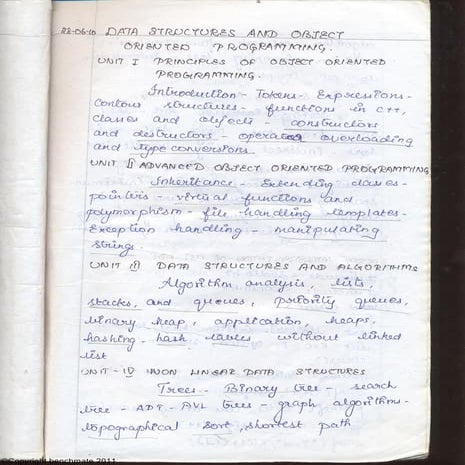 22-06-10 DATA STRUCTURES AND OBJECT
ORIENTED PROGRAMMING.
UNIT I PRINCIPLES OF OBJECT ORIENTED
PROGRAMMING.
Introduction - Tokens - Expressions -
Contour structures - functions in C++,
classes and objects - constructors
and destructors - operators overloading
and type conversions
UNIT II ADVANCED OBJECT ORIENTED PROGRAMMING
Inheritance - Extending classes -
pointers - virtual functions and
polymorphism - file handling templates -
Exception handling - manipulating
strings.
UNIT III DATA STRUCTURES AND ALGORITHMS
Algorithm, analysis, lists,
stacks, and queues, priority queues,
binary heap, application, heaps,
hashing - hash tables without linked
list
UNIT - IV NON LINEAR DATA STRUCTURES
Trees - Binary tree - search
tree - ADT - AVL trees - graph algorithms -
topographical sort, shortest path
©Copyright benchmate 2011